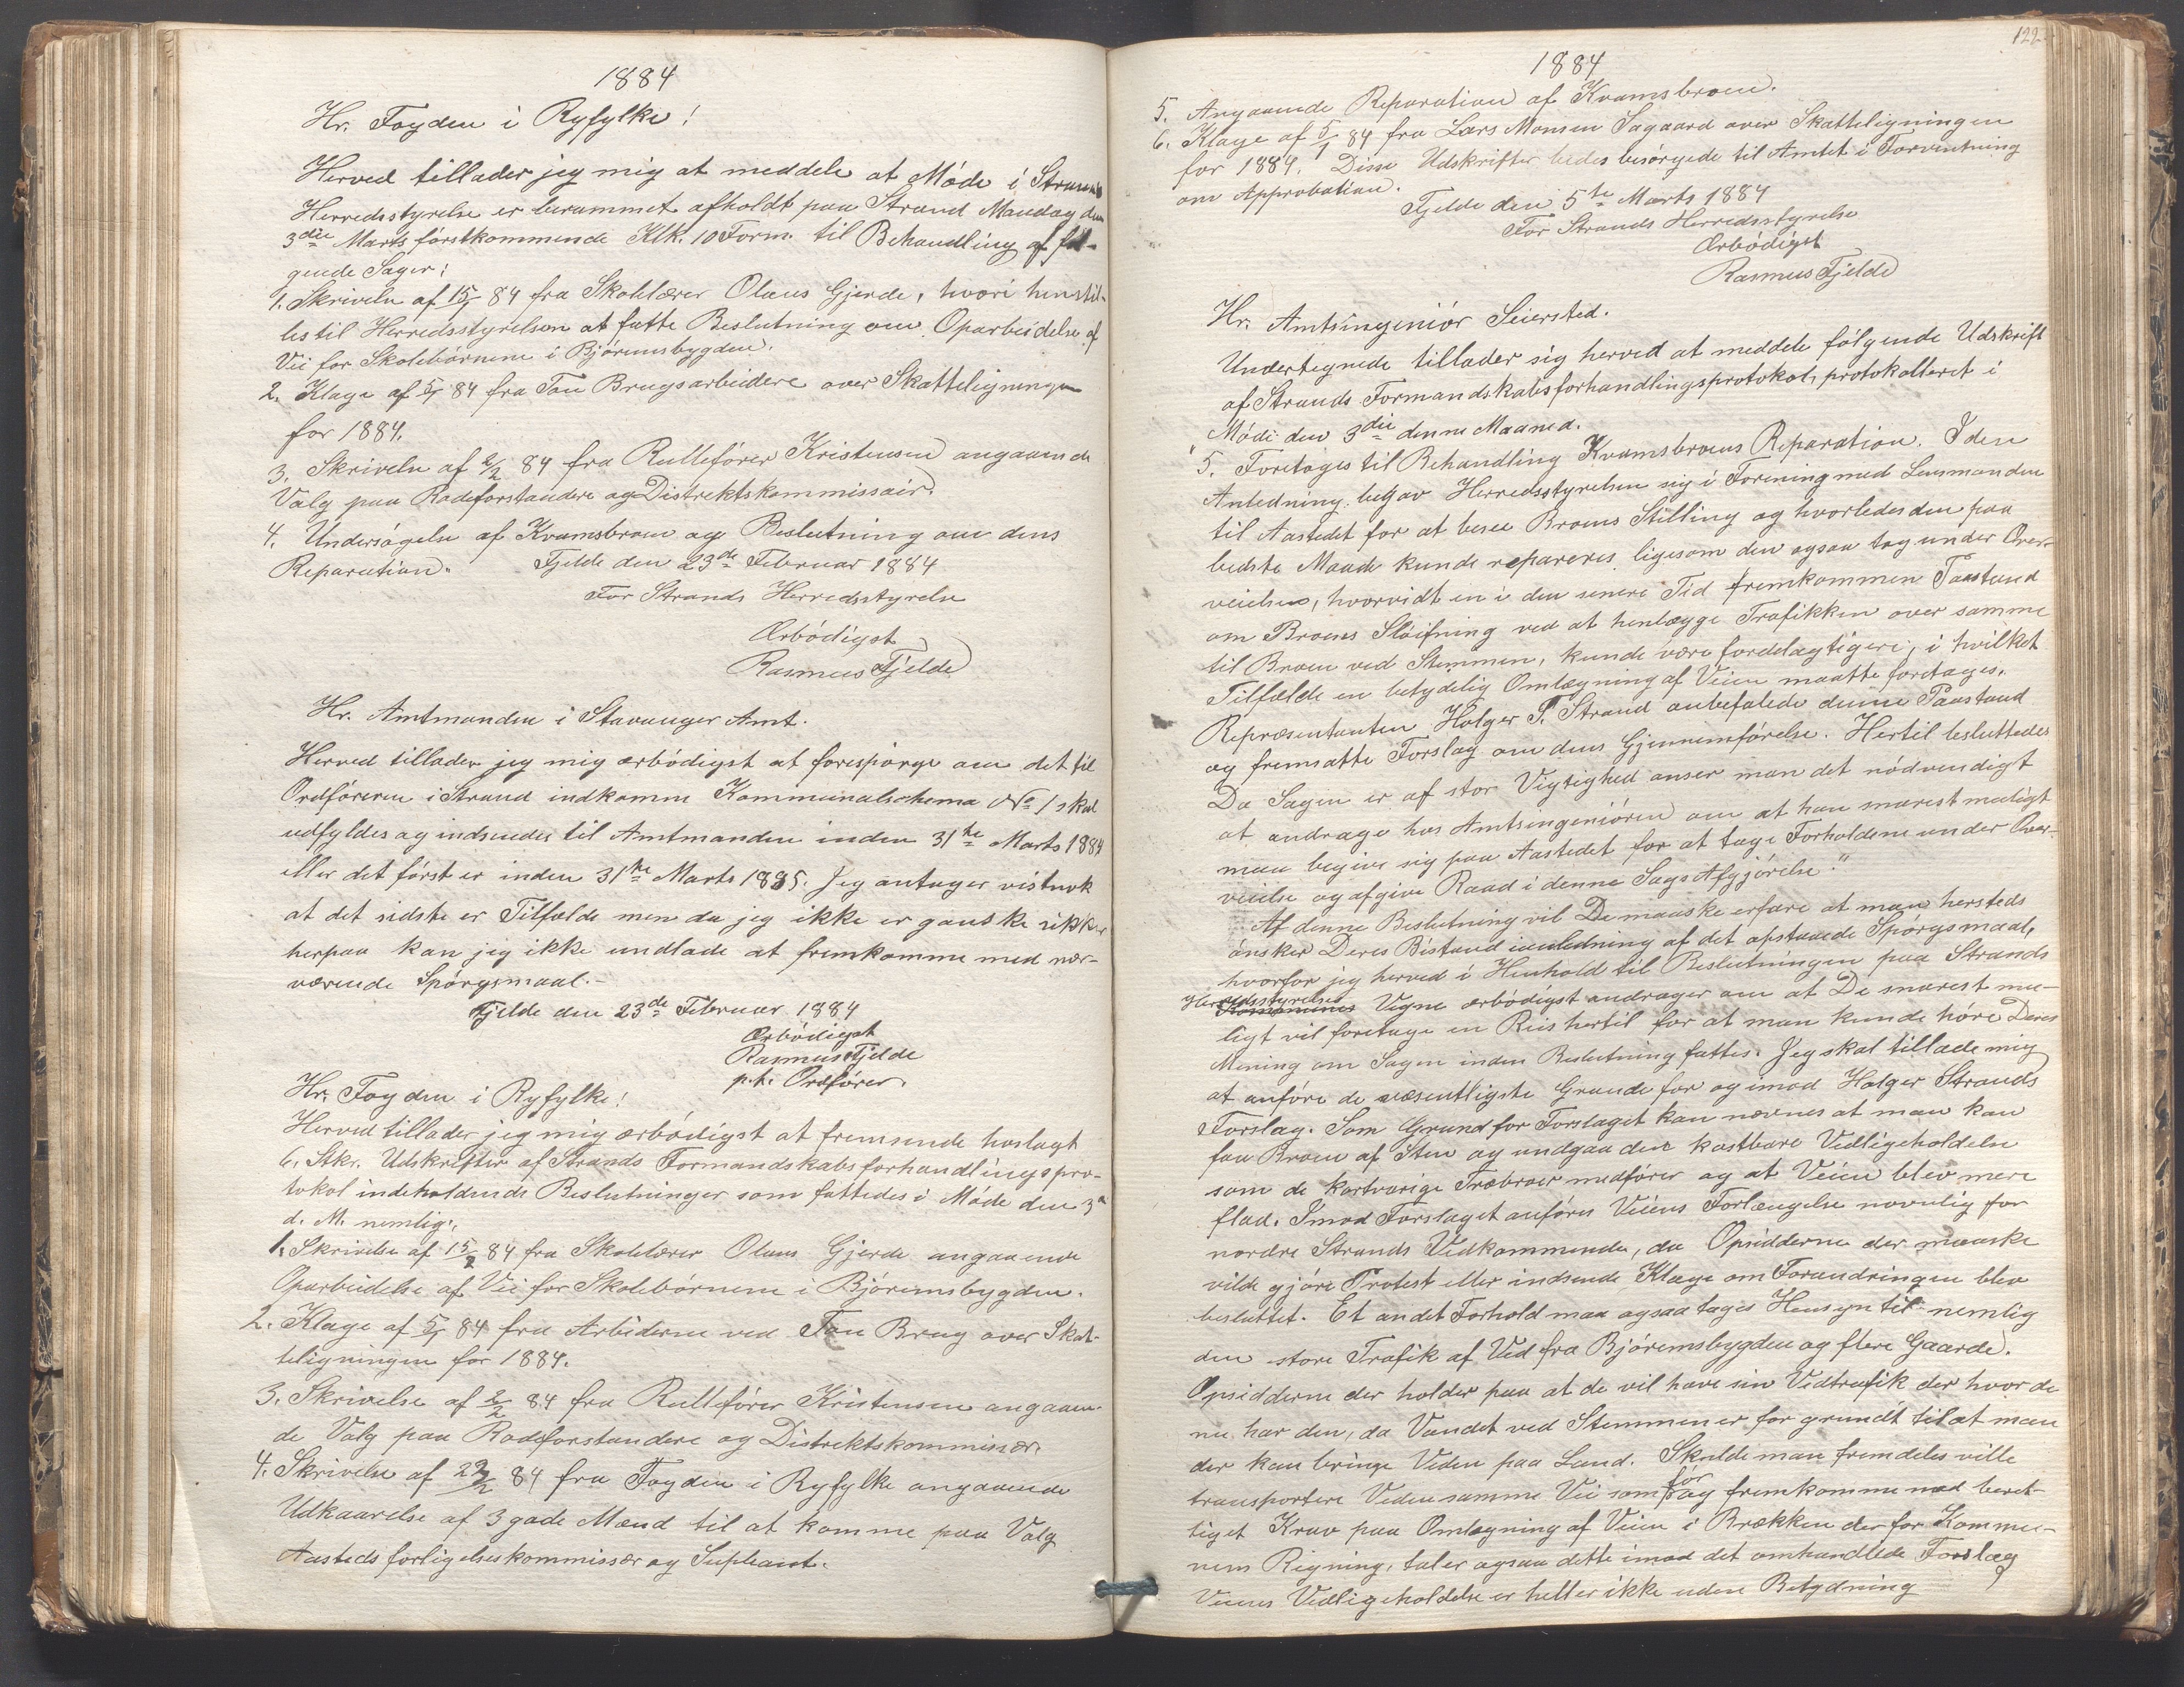 1884
Hr. Fogden i Ryfylke!
Herved tillader jeg mig at meddele at Möde i Strands
Herredsstyrelse er berammet afholdt paa Strand Mandag den
3die Marts förstkommende Klk. 10 Form. til Behandling af föl-
gende Sager:
1. Skrivelse af 15/1 84 fra Skolelærer Olaus Gjerde, hvori henstil-
les til Herredsstyrelsen at fatte Beslutning om Oparbeidelse af
Vei for Skolebörnene i Björemsbygden.
2. Klage af 5/1 84 fra Tau Brugsarbeidere over Skatteligningen
for 1884.
3. Skrivelse af 2/2 84 fra Rullefører Kristensen angaaende
Valg paa Rodeforstandere og Distriktskommissair.
4. Undersögelse af Kvamsbroen og Beslutning om dens
Reparation. Fjelde den 23de Februar 1884
For Strands Herredsstyrelse
Ærbödigst
Rasmus Fjelde
Hr. Amtmanden i Stavanger Amt.
Herved tillader jeg mig ærbödigst at forespörge om det til
Ordföreren i Strand indkomne Kommunalschema No 1 skal
udfyldes og indsendes til Amtmanden inden 31te Marts 1884
eller det först er inden 31te Marts 1885. Jeg antager vistnok
at det sidste er Tilfælde men da jeg ikke er ganske sikker
herpaa kan jeg ikke undlade at fremkomme med nær-
værende Spörgsmaal.-
Fjelde den 23de Februar 1884
Ærbödigst
Rasmus Fjelde
p.t. Ordfører.
Hr. Fogden i Ryfylke!
Herved tillader jeg mig ærbödigst at fremsende hoslagt
6. Stkr. Udskrifter af Strands Formandskabsforhandlingspro-
tokol indeholdende Beslutninger som fattedes i Möde den 3die
d. M. nemlig:
1. Skrivelse af 15/2 84 fra Skolelærer Olaus Gjerde angaaende
Oparbeidelse af Vei for Skolebörnene i Björemsbygden.
2. Klage af 5/1 84 fra Arbeiderne ved Tau Brug over Skat-
teligningen for 1884.
3. Skrivelse af 2/2 84 fra Rullefører Kristensen angaaen-
de Valg paa Rodeforstandere og Distriktskommissær.
4. Skrivelse af 22/2 84 fra Fogden i Ryfylke angaaende
Udkaarelse af 3 gode Mænd til at komme paa Valg
Aastedsforligelseskommissær og Supleant.
122
1884
5. Angaaende Reparation af Kvamsbroen.
6. Klage af 5/1 84 fra Lars Monsen Sagaard over Skatteligningen
for 1884. Disse Udskrifter bedes besörgede til Amtet i Forventning
om Approbation.
Fjelde den 5te Marts 1884
For Strands Herredsstyrelse
Ærbödigst
Rasmus Fjelde
Hr. Amtsingeniör Seiersted.
Undertegnede tillader sig herved at meddele fölgende Udskrift
af Strands Formandskabsforhandlingsprotokol, protokolleret i
Möde den 3die denne Maaned.
"5. Foretoges til Behandling Kvamsbroens Reparation. I den
Anledning begav Herredsstyrelsen sig i Forening med Lensmanden
til Aastedet for at besee Broens Stilling og hvorledes den paa
bedste Maade kunde repareres, ligesom den ogsaa tog under Over-
veielse, hvorvidt en i den senere Tid fremkommen Paastand
om Broens Slöifning ved at henlægge Trafikken over samme
til Broen ved Stemmen, kunde være fordelagtigere; i hvilket
Tilfælde en betydelig Omlægning af Veien maatte foretages.
Repræsentanten Holger T. Strand anbefalede denne Paastand
og fremsatte Forslag om dens Gjennemförelse. Hertil besluttedes
Da Sagen er af stor Vigtighed anser man det nödvendigt
at andrage hos Amtsingeniören om at han snarest muligt
maa begive sig paa Aastedet for at tage Forholdene under Over-
veielse og afgive Raad i denne Sags Afgjörelse."
Af denne Beslutning vil De maaske erfare at man hersteds
önsker Deres Bistand i anledning af det opstaaede Spörgsmaal,
hvorfor jeg herved i Henhold til Beslutningen paa Strands
Herredsstyrelses
Kommunes Vegne ærbödigst andrager om at De snarest mu-
ligt vil foretage en Reis hertil for at man kunde höre Deres
Mening om Sagen inden Beslutning fattes. Jeg skal tillade mig
at anföre de væsentligste Grunde for og imod Holger Strands
Forslag. Som Grund for Forslaget kan nævnes at man kan
faa Broen af Sten og undgaa den kostbare Vedligeholdelse
som de kortvarige Træbroer medförer og at Veien blev mere
flad. Imod Forslaget anföres Veiens Forlængelse navnlig for
nordre Strands Vedkommende, da Opsidderne der maaske
vilde gjöre Protest eller indsende Klage om Forandringen blev
besluttet. Et andet Forhold maa ogsaa tages Hensyn til nemlig
den store Trafik af Ved fra Björemsbygden og flere Gaarde.
Opsidderne der holder paa at de vil have sin Vedtrafik der hvor de
nu har den, da Vandet ved Stemmen er for grundt til at man
der kan bringe Veden paa Land. Skulde man fremdeles ville
transportere Veden samme Vei som för og fremkomme med beret-
tiget Krav paa Omlægning af Veien i Brækken der for Kommu-
nens Regning, taler ogsaa dette imod det omhandlede Forslag
Veiens Vedligeholdelse er heller ikke uden Betydning